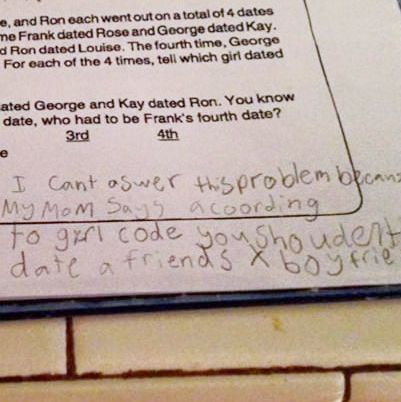 e, and Ron each went out on a total of 4 dates
me Frank dated Rose and George dated Kay.
d Ron dated Louise. The fourth time, George
For each of the 4 times, tell which girl dated
ated George and Kay dated Ron. You know
date, who had to be Frank's fourth date?
3rd 4th
e
I cant aswer this problem becaus
My Mom Says acoording
to girl code you shoudent
date a friends X boyfrie